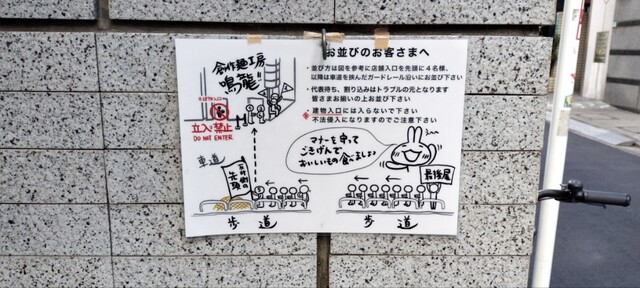 お並びのお客さまへ
・並び方は図を参考に店舗入口を先頭に4名様、
以降は車道を挟んだガードレール沿いにお並び下さい
・代表待ち、割り込みはトラブルの元となります
皆さまお揃いの上お並び下さい
※建物入口には入らないで下さい
不法侵入になりますのでご注意下さい
創作麺工房
鳴龍
立入禁止
DO NOT ENTER
車道
マナーを守って
ごきげんで
おいしいもの食べましょう
最後尾
歩道
歩道